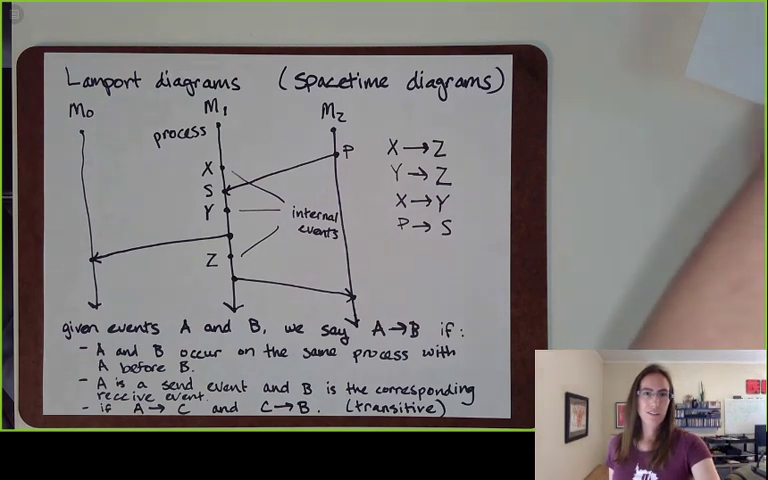 Lamport diagrams (spacetime diagrams)
M0 M1 M2
process
P
X
S
Y
internal
events
Z
X → Z
Y → Z
X → Y
P → S
given events A and B, we say A → B if:
- A and B occur on the same process with
A before B.
- A is a send event and B is the corresponding
receive event.
- if A → C and C → B. (transitive)